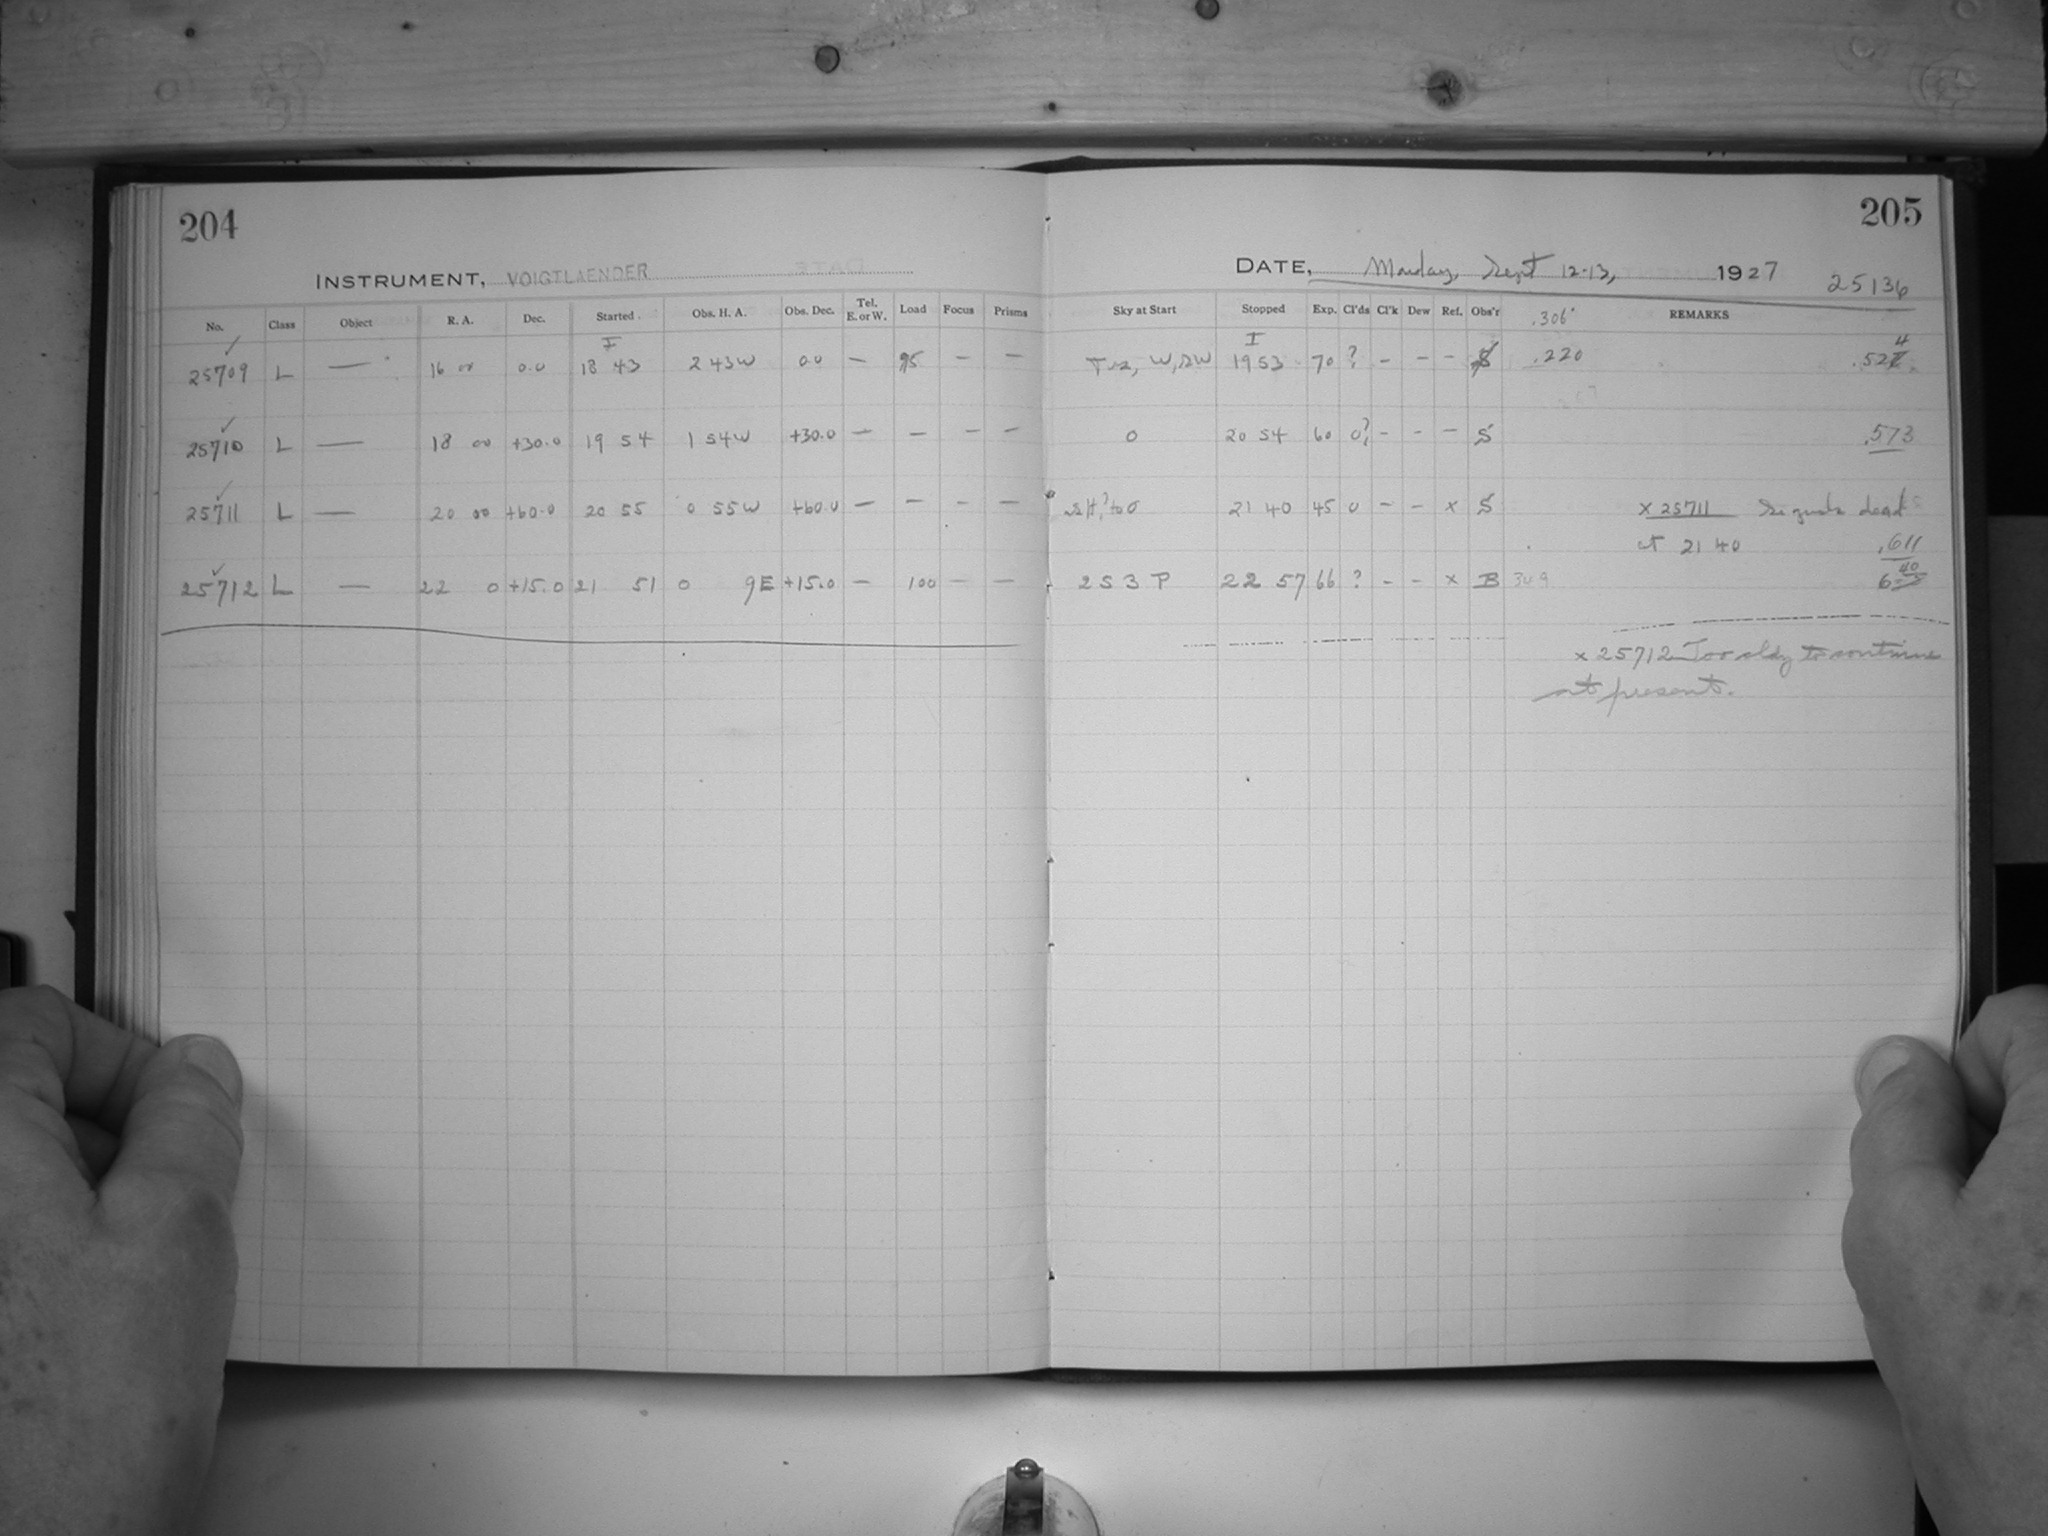 204
INSTRUMENT, VOIGTLAENDER
No. Class Object R. A. Dec. Started Obs. H. A. Obs. Dec. Tel. E. or W. Load Focus Prisms
I
25709 L — 16 00 0.0 18 43 2 43W 0.0 — 95 — —
25710 L — 18 00 +30.0 19 54 1 54W +30.0 — — — —
25711 L — 20 00 +60.0 20 55 0 55W +60.0 — — — —
25712 L — 22 0 +15.0 21 51 0 9E +15.0 — 100 — —
205
DATE, Monday, Sept 12-13, 1927
25136
Sky at Start Stopped Exp. Cl'ds Cl'k Dew Ref. Obs'r .306 REMARKS
I
W, SW 19 53 70 ? – – – S .220 .52 4
0 20 54 60 0? – – – S .573
to 0 21 40 45 0 – – x S x 25711 Signals dead
at 21 40 .611
2 S 3 P 22 57 66 ? – – x B 309 6 40
x 25712 Too cldy to continue
at present.